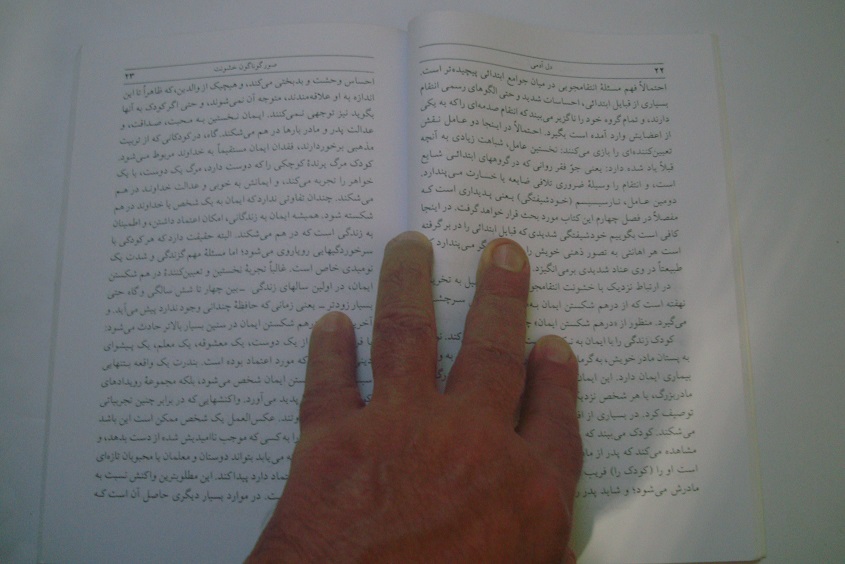 ۲۲
دل آدمی
احتمالاً فهم مسئلهٔ انتقامجویی در میان جوامع ابتدائی پیچیده‌تر است.
بسیاری از قبایل ابتدائی، احساسات شدید و حتی الگوهای رسمی انتقام
دارند، و تمام گروه خود را ناگزیر می‌بیند که انتقام صدمه‌ای را که به یکی
از اعضایش وارد آمده است بگیرد. احتمالاً در اینجا دو عامل نقش
تعیین‌کننده‌ای را بازی می‌کنند: نخستین عامل، شباهت زیادی به آنچه
قبلاً یاد شده دارد: یعنی جوّ فقر روانی که در گروههای ابتدائی شایع
است، و انتقام را وسیلهٔ ضروری تلافی ضایعه یا خسارت می‌پندارد.
دومین عامل، نارسیسیسم (خودشیفتگی) یعنی پدیداری است که
مفصلاً در فصل چهارم این کتاب مورد بحث قرار خواهد گرفت. در اینجا
کافی است بگوییم خودشیفتگی شدیدی که قبایل ابتدائی را در بر گرفته
است هر اهانتی به تصور ذهنی خویش را می‌پندارد که
طبیعتاً در وی عناد شدیدی برمی‌انگیزد.
در ارتباط نزدیک با خشونت انتقامجو به تخریب
نهفته است که از درهم شکستن ایمان سرچشمه
می‌گیرد. منظور از «درهم شکستن ایمان»
کودک زندگی را با ایمان به
به پستان مادر خویش، به گرما
بیماری ایمان دارد. این ایمان
مادربزرگ، یا هر شخص نزدیک
توصیف کرد. در بسیاری از
می‌شکند. کودک می‌بیند که
مشاهده می‌کند که پدر از
است او را (کودک را) فریب
مادرش می‌شود؛ و شاید پدر
صور گوناگون خشونت
۲۳
احساس وحشت و بدبختی می‌کند، و هیچیک از والدین، که ظاهراً تا این
اندازه به او علاقه‌مندند، متوجه آن نمی‌شوند، و حتی اگر کودک به آنها
بگوید نیز توجهی نمی‌کنند. ایمان نخستین به محبت، صداقت، و
عدالت پدر و مادر بارها در هم می‌شکند. گاه، در کودکانی که از تربیت
مذهبی برخوردارند، فقدان ایمان مستقیماً به خداوند مربوط می‌شود.
کودک مرگ پرندهٔ کوچکی را که دوست دارد، مرگ یک دوست، یا یک
خواهر را تجربه می‌کند، و ایمانش به خوبی و عدالت خداوند در هم
می‌شکند. چندان تفاوتی ندارد که ایمان به یک شخص یا خداوند در هم
شکسته شود. همیشه ایمان به زندگانی، امکان اعتماد داشتن، و اطمینان
به زندگی است که در هم می‌شکند. البته حقیقت دارد که هر کودکی با
سرخوردگیهایی رویاروی می‌شود؛ اما مسئلهٔ مهم گزندگی و شدت یک
نومیدی خاص است. غالباً تجربهٔ نخستین و تعیین‌کننده در هم شکستن
ایمان، در اولین سالهای زندگی — بین چهار تا شش سالگی و گاه حتی
بسیار زودتر — یعنی زمانی که حافظهٔ چندانی وجود ندارد پیش می‌آید و
هم شکستن ایمان در سنین بسیار بالاتر حادث می‌شود:
از یک دوست، یک معشوقه، یک معلم، یک پیشوای
که مورد اعتماد بوده است. بندرت یک واقعه بتنهایی
ایمان شخص می‌شود، بلکه مجموعهٔ رویدادهای
پدید می‌آورد. واکنشهایی که در برابر چنین تجربیاتی
عکس‌العمل یک شخص ممکن است این باشد
را به کسی که موجب ناامیدیش شده از دست بدهد، و
می یابد بتواند دوستان و معلمان یا محبوبان تازه‌ای
دارد پیدا کند. این مطلوبترین واکنش نسبت به
در موارد بسیار دیگری حاصل آن است که